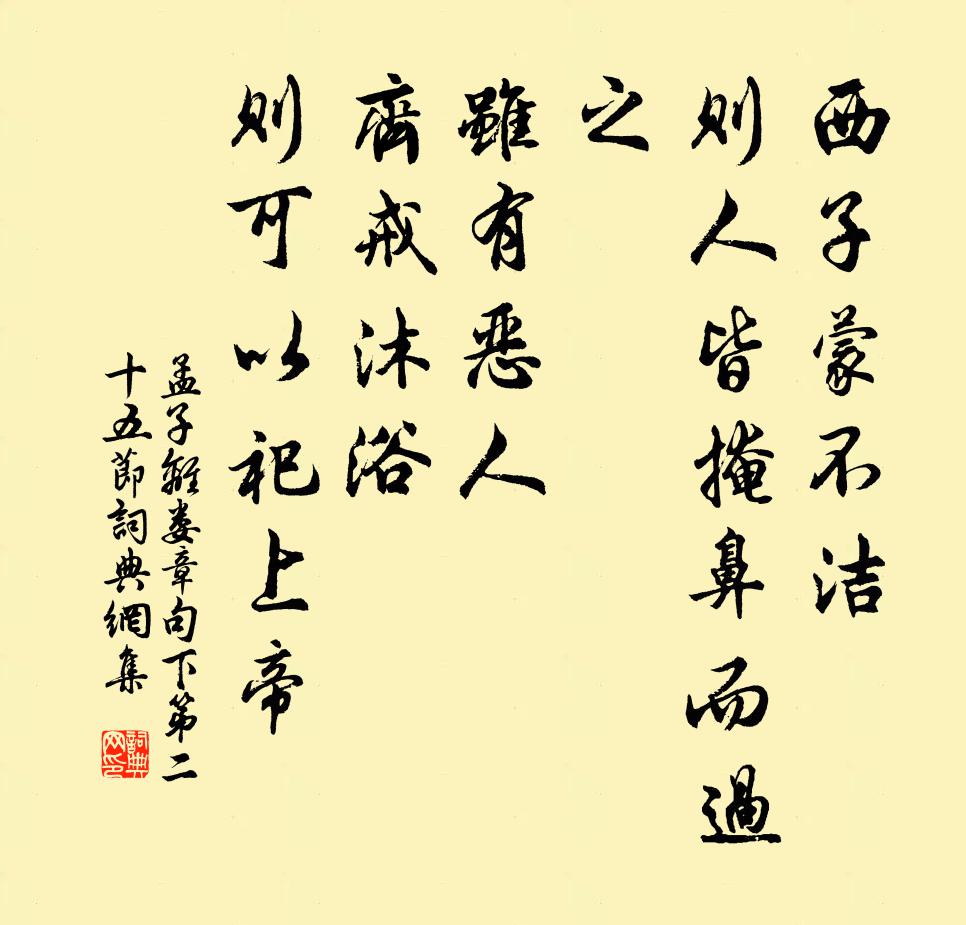 西子蒙不洁
則人皆掩鼻而過
之
雖有惡人
齊戒沐浴
則可以祀上帝
孟子離娄章句下第二
十五節詞典網集
詞典网印